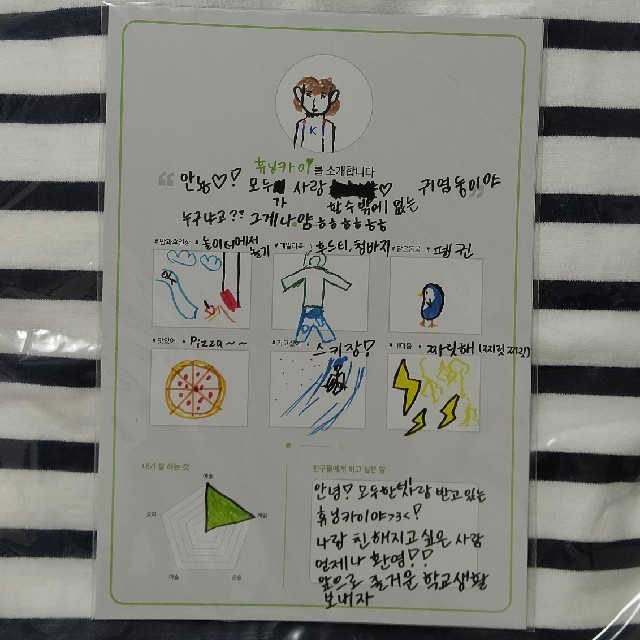 K
휴닝카이를 소개합니다
안뇽♡! 모두가 사랑♡ 할수밖에 없는 귀염둥이야
누구냐고?? 그게 나얌 ㅎㅎㅎㅎㅎㅎ
놀이터에서 놀기
후드티, 청바지
펭귄
Pizza~~
스키장!
짜릿해 (찌릿 찌릿)
내가 잘 하는 것
예술
게임
운동
미술
요리
친구들에게 하고 싶은 말
안녕! 모두한테 사랑 받고 있는
휴닝카이야 >3<!
나랑 친해지고 싶은 사람
언제나 환영!!
앞으로 즐거운 학교생활
보내자